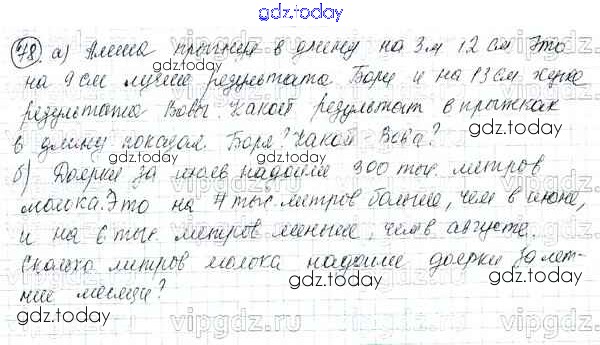 gdz.today
78. а) Алеша прыгнул в длину на 3 м 12 см. Это
на 9 см лучше результата Бори и на 13 см хуже
результата Вовы. Какой результат в прыжках
в длину показал Боря? Какой Вова?
б) Доярки за июль надоили 300 тыс. литров
молока. Это на 7 тыс. литров больше, чем в июне,
и на 6 тыс. литров меньше, чем в августе.
Сколько литров молока надоили доярки за лет-
ние месяцы?